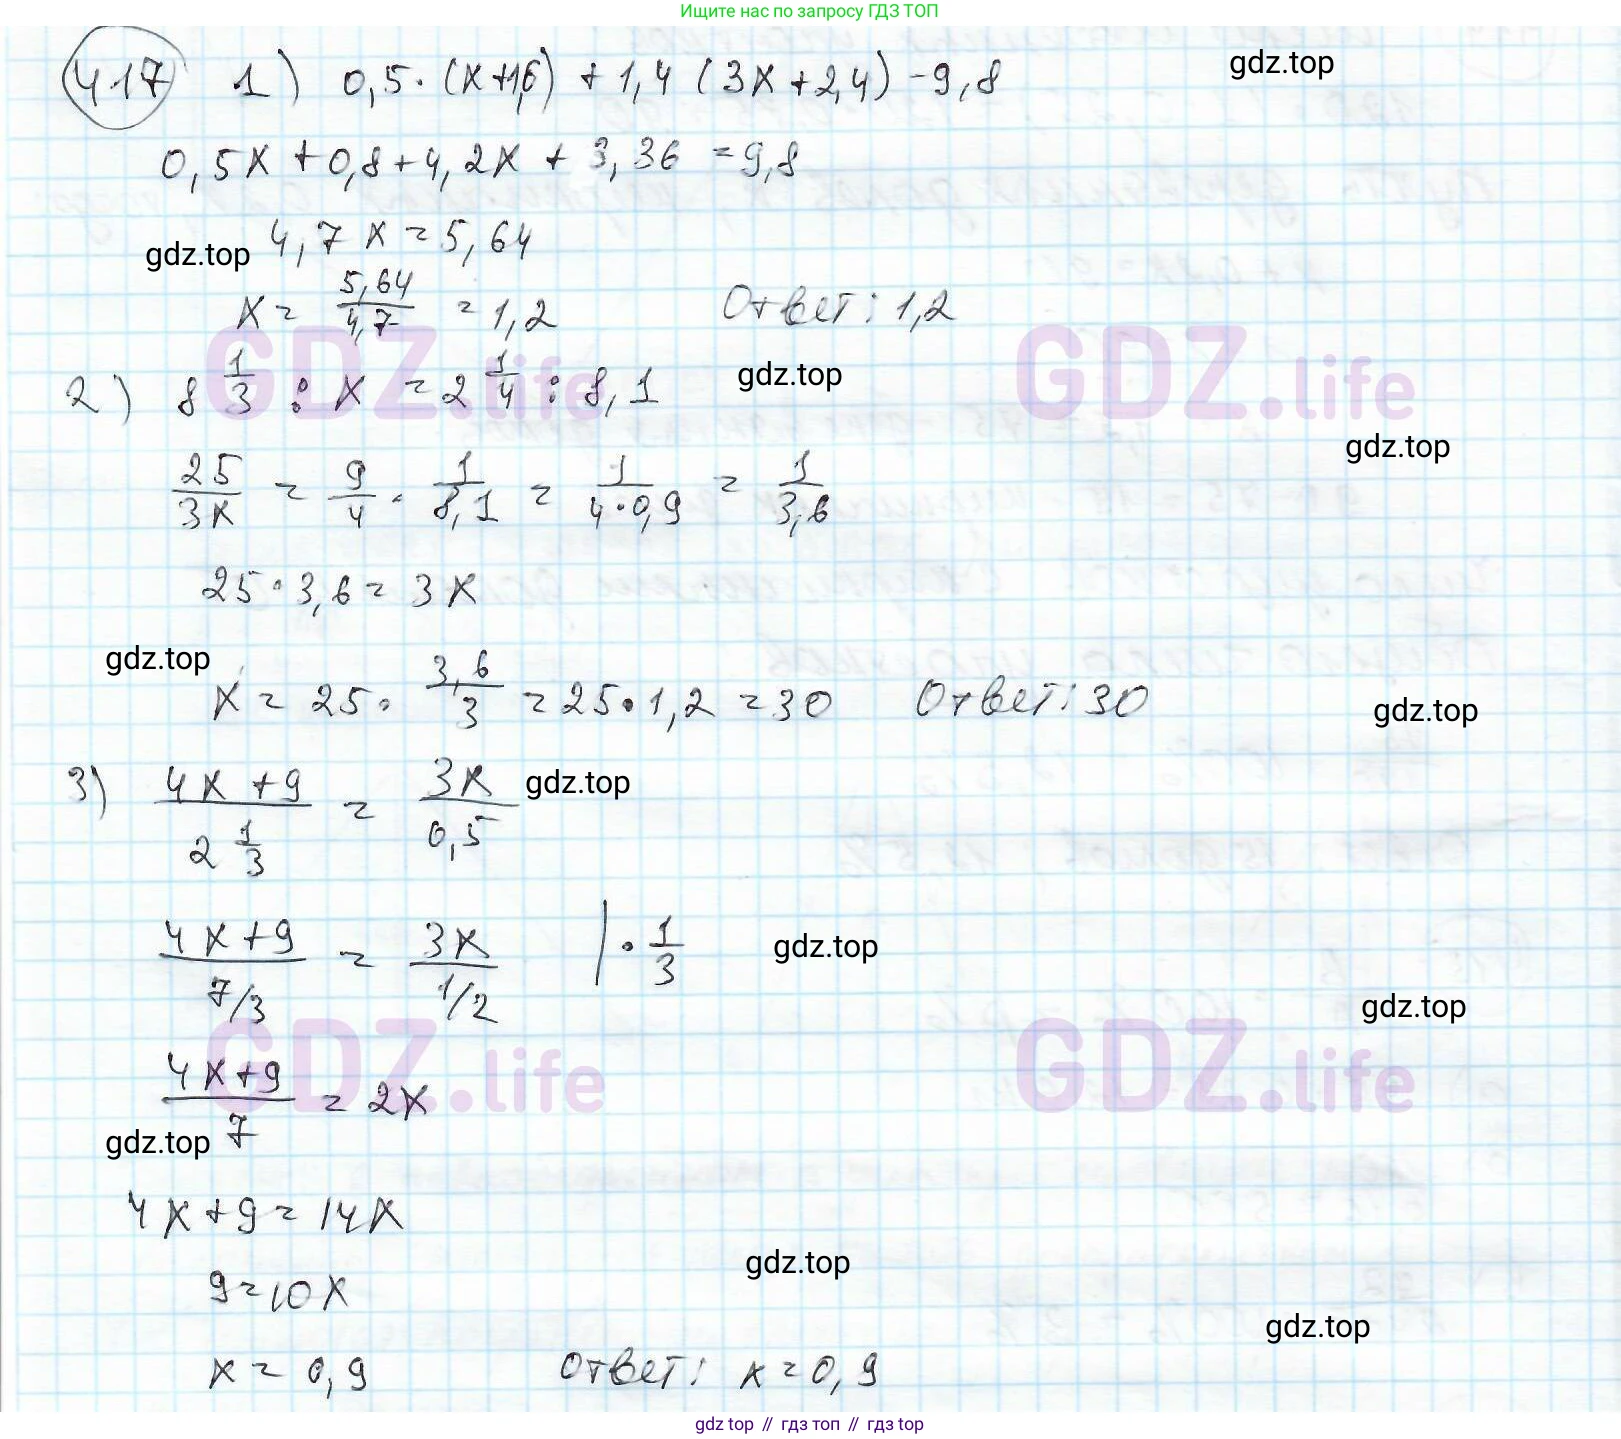 Ищите нас по запросу ГДЗ ТОП
417 1) 0,5·(x+1,6)+1,4(3x+2,4)-9,8
gdz.top
0,5x+0,8+4,2x+3,36=9,8
4,7x=5,64
gdz.top
x=5,64/4,7=1,2 Ответ: 1,2
GDZ.life GDZ.life
2) 8 1/3 : x = 2 1/4 : 8,1
gdz.top
gdz.top
25/3x = 9/4 · 1/8,1 = 1/4·0,9 = 1/3,6
25·3,6=3x
gdz.top
x=25·3,6/3=25·1,2=30 Ответ: 30
gdz.top
3) 4x+9/2 1/3 = 3x/0,5
gdz.top
4x+9/7/3 = 3x/1/2 |·1/3
gdz.top
gdz.top
GDZ.life GDZ.life
4x+9/7=2x
gdz.top
4x+9=14x
gdz.top
9=10x
gdz.top
x=0,9 Ответ: x=0,9
gdz top // гдз топ // гдз top